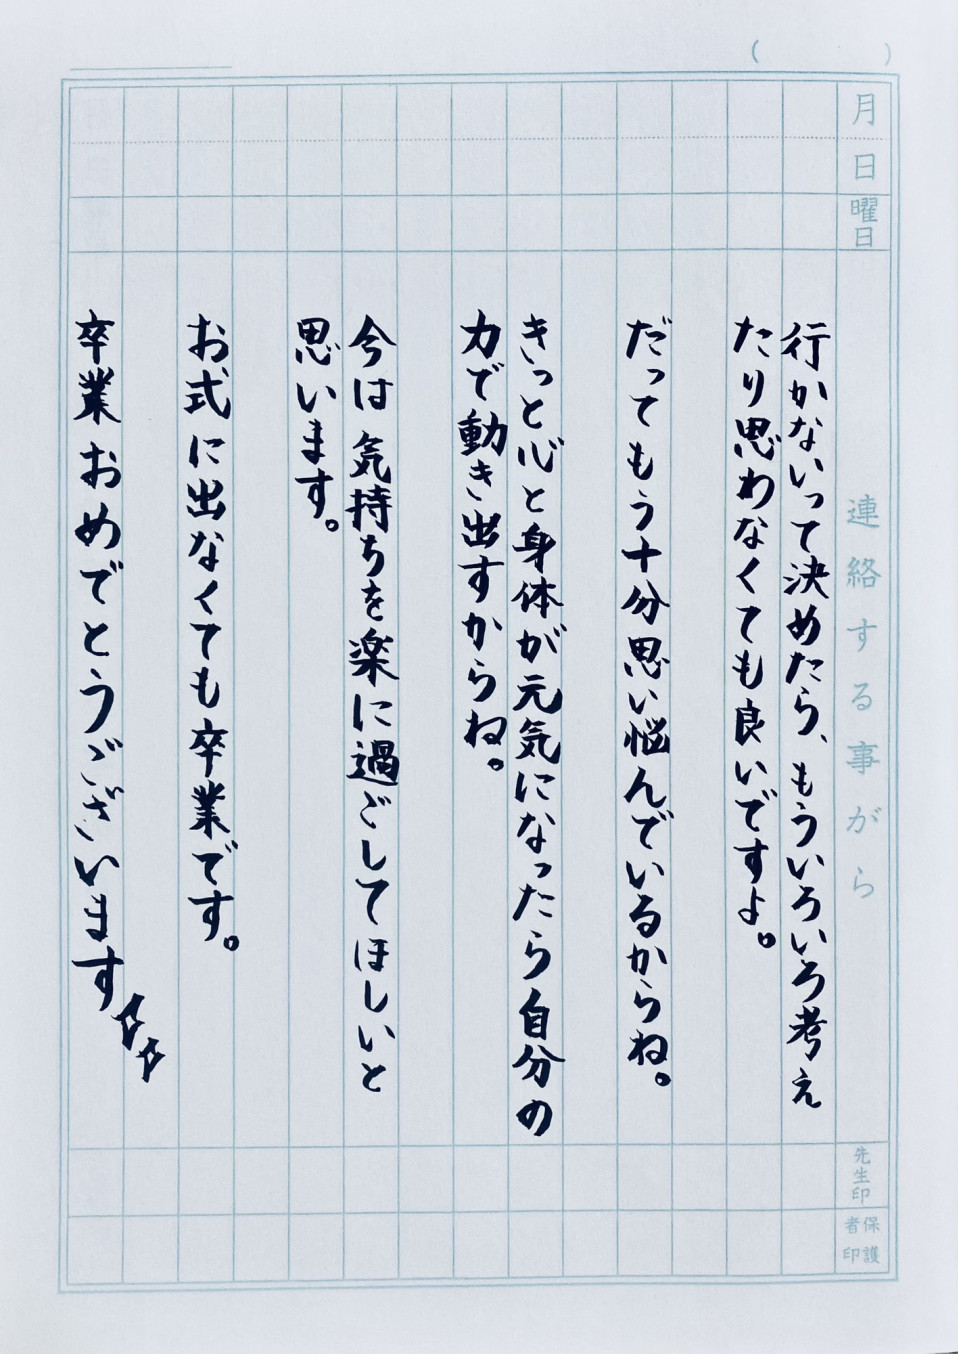 (　　)
月　日
曜日
連絡する事がら
先生印
保護者印
行かないって決めたら、もういろいろ考え
たり思わなくても良いですよ。
だってもう十分思い悩んでいるからね。
きっと心と身体が元気になったら自分の
力で動き出すからね。
今は気持ちを楽に過ごしてほしいと
思います。
お式に出なくても卒業です。
卒業おめでとうございます